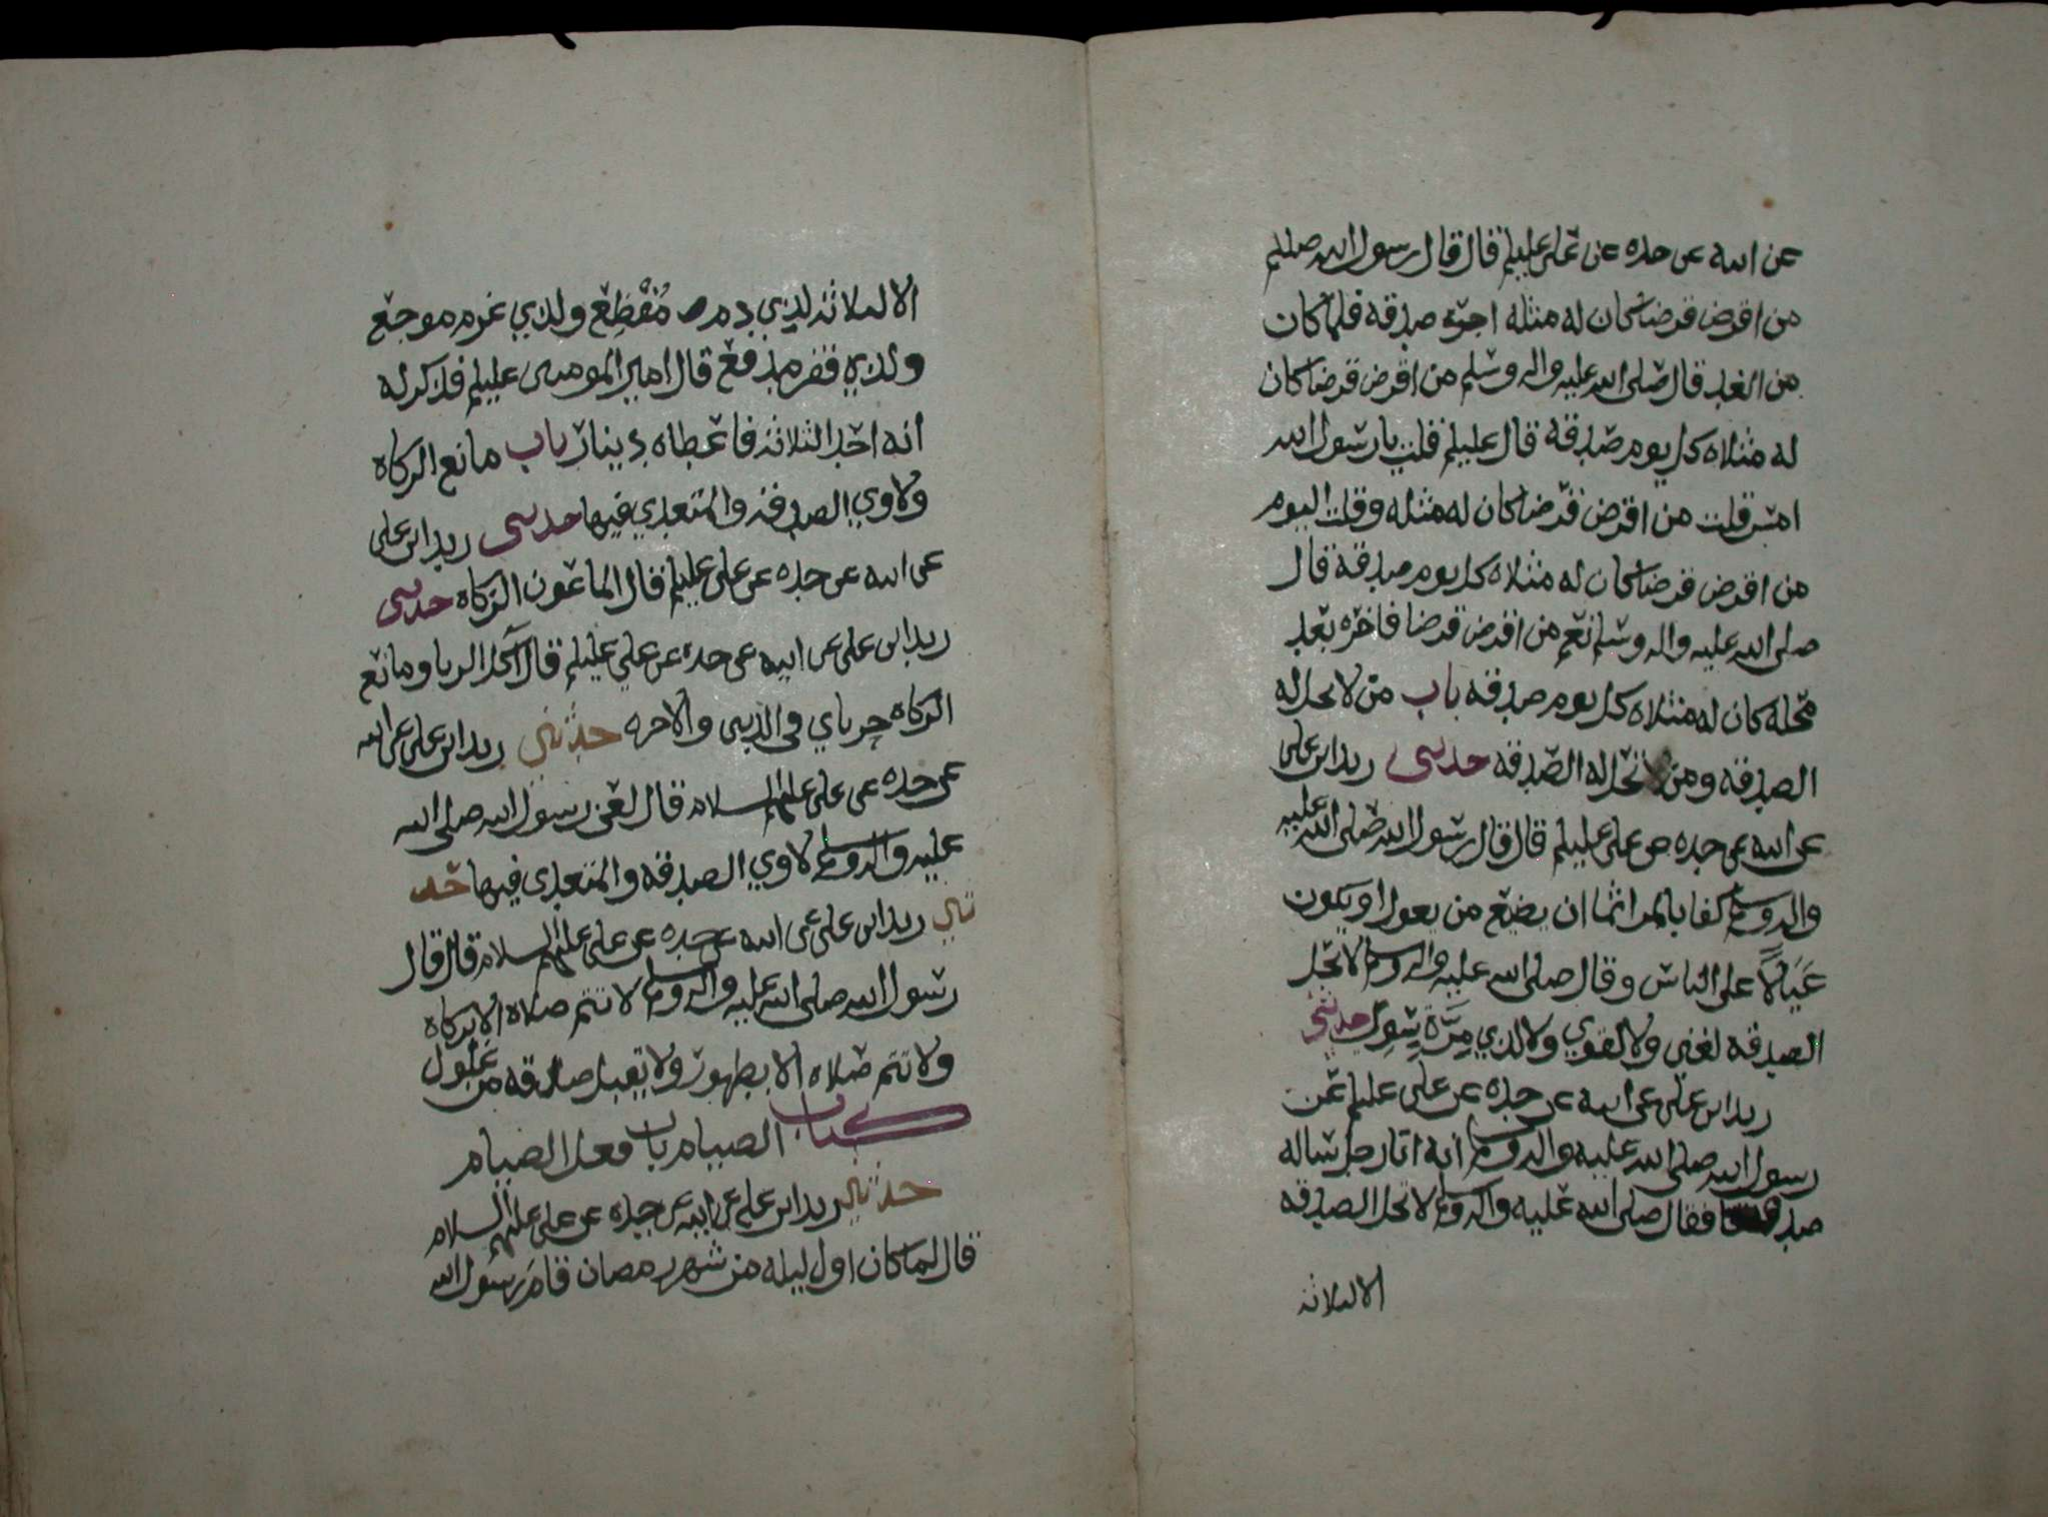 عن ابيه عن جده عن علي عليلم قال قال رسول الله صللم
من اقرض قرضا كان له مثله اجره صدقه فلما كان
من الغد قال صلى الله عليه واله وسلم من اقرض قرضا كان
له مثلاه كل يوم صدقة قال عليلم قلت يا رسول الله
امس قلت من اقرض قرضا كان له مثله وقلت اليوم
من اقرض قرضا كان له مثلاه كل يوم صدقة قال
صلى الله عليه واله وسلم نعم من اقرض قرضا فاخره بعد
محله كان له مثلاه كل يوم صدقه باب من لا تحل له
الصدقه ومن تحل له الصدقه حدثني زيد ابن علي
عن ابيه عن جده عن علي عليلم قال قال رسول الله صلى الله عليه
واله وسلم كفا بالمر اثما ان يضيع من يعول او يكون
عَيَالاً على الناس وقال صلى الله عليه واله وسلم لا تحل
الصدقه لغني ولا لقوي ولا لذي مِرَّة سَوِي حدثني
زيد ابن علي عن ابيه عن جده عن علي عليلم عن
رسول الله صلى الله عليه واله وسلم انه اتا رجل ساله
فقال صلى الله عليه واله وسلم لا تحل الصدقه
الا لثلاثة
الا لثلاثة لذي دم مُفْظِع ولذي غرم موجع
ولذي فقر مدقع قال امير المومنين عليلم فذكر له
انه احد الثلاثة فاعطاه دينار باب مانع الزكاه
ولاوي الصدقة والمتعدي فيها حدثني زيد ابن علي
عن ابيه عن جده عن علي عليلم قال الماعون الزكاه حدثني
زيد ابن علي عن ابيه عن جده عن علي عليلم قال آكل الربا ومانع
الزكاه حرباي في الدنيى والاخره حدثني زيد ابن علي عن ابيه
عن جده عن علي عليهم السلام قال لعن رسول الله صلى الله
عليه واله وسلم لاوي الصدقه والمتعدي فيها حد
ثني زيد ابن علي عن ابيه عن جده عن علي عليهم السلام قال قال
رسول الله صلى الله عليه واله وسلم لا تتم صلاه الا بزكاه
ولا تتم صلاه الا بطهور ولا يقبل صدقه من غلول
كتاب الصيام باب فعل الصيام
حدثني زيد ابن علي عن ابيه عن جده عن علي عليهم السلام
قال لما كان اول ليله من شهر رمضان قام رسول الله